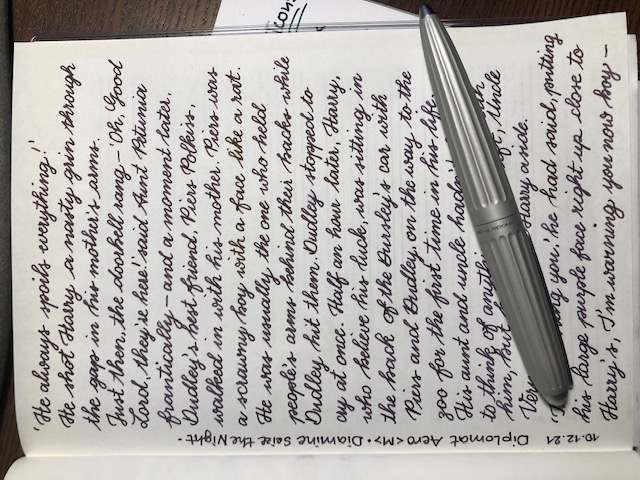 10.12.21 Diplomat Aero <M> · Diamine Seize the Night ·
'He always spoils everything!'
He shot Harry a nasty grin through
the gap in his mother's arms.
Just then, the doorbell rang – 'Oh, Good
Lord, they're here!' said Aunt Petunia
frantically – and a moment later,
Dudley's best friend, Piers Polkiss,
walked in with his mother. Piers was
a scrawny boy with a face like a rat.
He was usually the one who held
people's arms behind their backs while
Dudley hit them. Dudley stopped to
cry at once. Half an hour later, Harry,
who believe his luck, was sitting in
the back of the Dursley's car with
Piers and Dudley, on the way to the
zoo for the first time in his life.
His aunt and uncle
to think of
him, Uncle
Harry aside.
you,' he had said, putting
his large purple face right up close to
Harry's, 'I'm warning you now boy –